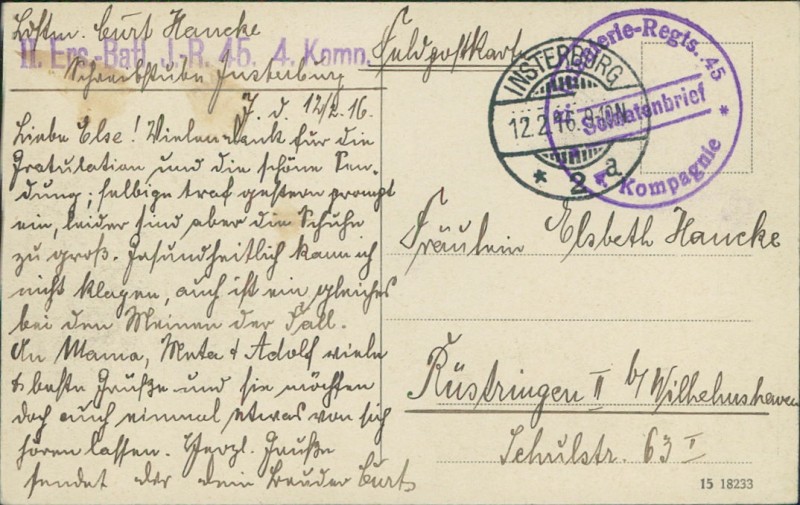 Ldstm. Curt Hancke
II. Ers.-Batl. J.-R. 45. 4. Komp.
Schreibstube Insterburg
Feldpostkarte
INSTERBURG
12.2.16. 8-9N.
* 2 a
Infanterie-Regts. 45
Soldatenbrief
4. Kompagnie *
J. d. 12/2.16.
Liebe Else! Vielen Dank für die
Gratulation und die schöne Sen-
dung; selbige traf gestern prompt
ein, leider sind aber die Schuhe
zu groß. Gesundheitlich kann ich
nicht klagen, auch ist ein gleiches
bei den Meinen der Fall.
An Mama, Meta & Adolf viele
& beste Grüße und sie möchten
doch auch einmal etwas von sich
hören lassen. Herzl. Grüße
sendet dir dein Bruder Curt
Fräulein Elsbeth Hancke
Rüstringen II b/Wilhelmshaven
Schulstr. 63 I
15 18233